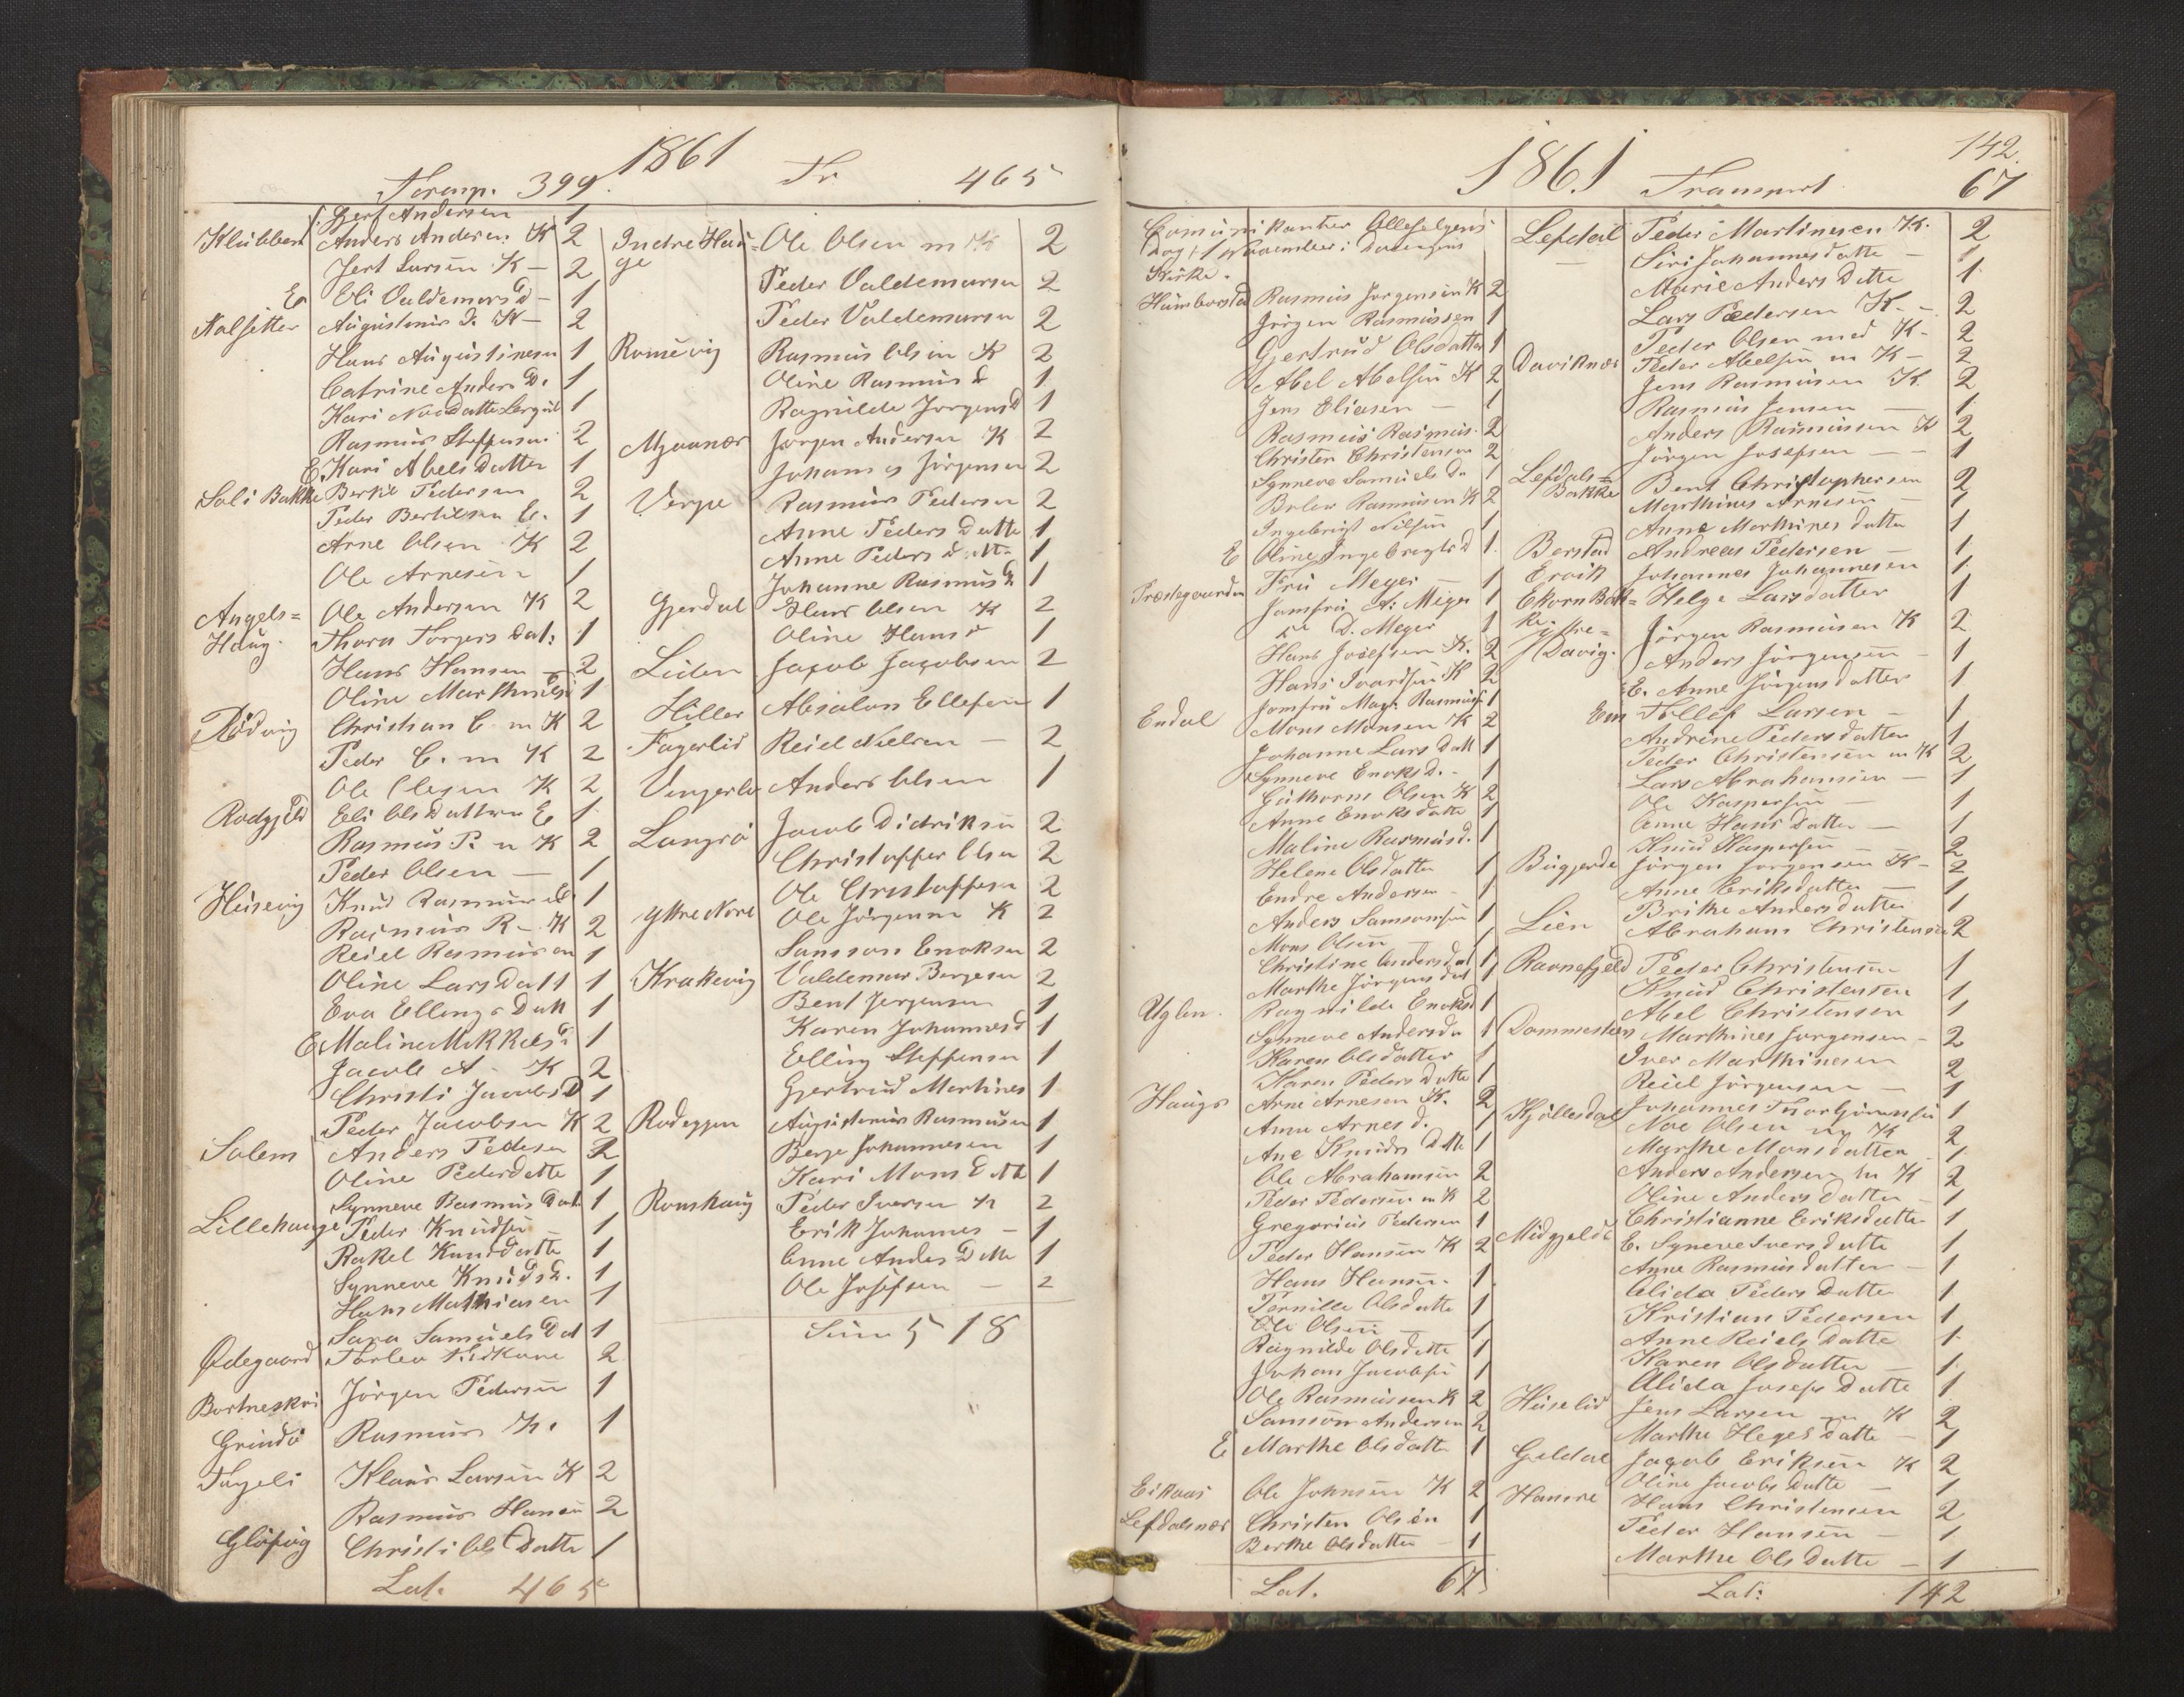 1861
Transp. 399.
Gert Andersen 1
Klubben Anders Andersen K 2
Gert Larsen K - 2
E Eli Valdemarsd - 1
Augustinus D. K - 2
Hans Augustinesen 1
Catrine Anders D. 1
Kari 1
Rasmus Steffensen 2
E Kari Abels Datter 1
Bakke Berkil Pedersen 2
Peder Bertilsen E. 1
Arne Olsen K 2
Ole Arnesen 1
Angels= Ole Andersen K 2
Haug. Thora Torgers Dat: 1
Hans Hansen - 2
Oline 1
Rødvig Christian C. m K 2
Peder C. m K 2
Ole Olesen K 2
Eli Olsdatter E 1
Rasmus P. m K 2
Peder Olsen - 1
Husevig Knud Rasmus 1
Rasmus R - K 2
Reiel Rasmusen 1
Oline Larsdatt 1
Eva Ellings Datt 1
E Maline Mikkelsd 1
Jacob A - K 2
Christi Jacobs D 1
Peder Jacobsen K 2
Salem Anders Pedersen 2
Oline Pederdatte 1
Synneve Rasmus Dat. 1
Lillehauge Peder Knudsen 1
Rakel Knudsdatte 1
Synneve Knudsd. 1
Hans Mathiesen 1
Sara Samuels Dat 1
Ødegaard Torlev 2
Jørgen Pedersen 1
Grindø Rasmus 1
Klaus Larsen K 2
Rasmus Hansen 2
Christi Ols Datte 1
Lat. 465
Tr. 465
Indre Hau= Ole Olsen m K 2
ge
Peder Valdemarsen 2
Peder Valdemarsen 2
Rasmus Olsen K 2
Oline Rasmus d 1
Ragnilde Jørgens D 1
Jørgen Andersen K 2
Johannes Jørgensen 2
Rasmus Pedersen 2
Anne Peders Datte 1
Anne Peders Datte 1
Johanne Rasmus D. 1
Gjerdal Hans Olsen K 2
Oline Hans d 1
Liden Jacob Jacobsen 2
Hiller Absalon Ellefsen 1
Fagerlid Reiel Nielsen - 2
Anders Olsen 1
Jacob Didriksen 2
Christoffer Olsen 2
Ole Christoffersen 2
Ytre Ole Jørgensen K 2
Samson Enoksen 2
Krakevig Valdemar Børgesen 2
Bent Jørgensen 1
Karen Johannesd 1
Elling Steffensen 1
Gjertrud Martines 1
Augustinus Rasmusen 1
Børge Johannesen 1
Kari Mons Datte 1
Peder Iversen K 2
Erik Johannes - 1
Anne Anders Datte 1
Ole Josefsen - 2
Sum 518
1861
142.
Transport 67
Comunikanter Allehelgens
Dag 1 November i Davigens
Kirke.
Rasmus Jørgensen K 2
Jørgen Rasmussen 1
Gjertrud Olsdatter 1
Abel Abelsen K 2
Jens Eliasen - 1
Rasmus Rasmus. 2
Christen Christensen 2
Synneve Samuels D. 1
Rasmusen K 2
Ingebrigt Nilsen 1
E Oline Ingebregts D 1
Præstegaarden Fru Meyer 1
Jomfru A: Meyer 1
D. Meyer 1
Hans Josefsen K. 2
Hans Ivarsen K 2
Jomfru Rasmus 1
Endal Mons Monsen K 2
Johanne Lars Datt 1
Synneve Enoks D. - 1
Guthorm Olsen K 2
Anne Enoks datte 1
Maline Rasmusd. 1
Helene Olsdatter 1
Endre Andersen - 1
Anders Samsonsen 1
Mons Olsen 1
Christine Andersdat 1
Marthe Jørgensdat 1
Uglen. Ragnilde Enoksd 1
Synneve Andersda 1
Karen Olsdatter 1
Karen Peders Datte 1
Haugs Arne Arnesen K. 2
Anne Arnes d. 1
Ane Knuds Datte 1
Ole Abrahamsen 2
Peder Pedersen m K 2
Gregorius Pedersen 1
Peder Hansen K 2
Hans Hansen. 1
Pernille Olsdatte 1
Ole Olsen 1
Ragnilde Olsdatte 1
Johan Jacobsen 1
Ole Rasmussen K 2
Samson Andersen 2
E Marthe Olsdatte 1
Eikaas Ole Johnsen K 2
Lefdalsnæs Christen Olsen 1
Berthe Olsdatter - 1
Lat. 67
Lefdal Peder Martinusen K. 2
Siri Johannesdatte - 1
Marie Anders Datte 1
Lars Pedersen K. - 2
Peder Olsen med K - 2
Daviknæs Peder Abelsen m K - 2
Jens Rasmusen K. 2
Rasmus Jensen - 1
Anders Rasmussen K 2
Jørgen Josefsen - - 1
Lefdals= Bent Christophersen 2
Bakke Marthinus Arnesen - 1
Anne Marthines datter 1
Berstad Andreas Pedersen - 1
Ervik Johannes Johannesen 1
Ekorn Bak= Helge Larsdatter 1
ke
Ytre= Jørgen Rasmusen K 2
Davig. Anders Jørgensen - 1
E. Anne Jørgensdatter 1
Em Tollef Larsen - 1
Andrine Pedersdatter 1
Peder Christensen m K 2
Lars Abrahamsen - 1
Ole Kaspersen - 1
Anne Hans Datter - 1
Knud Kaspersen - 2
Jørgen Jørgensen K - 2
Anne Eriksdatter - 1
Brithe Andersdatter 1
Lien Abraham Christensen 2
Ravnefjeld Peder Christensen 1
Knud Christensen 1
Abel Christensen 1
Dommesteen Marthines Jørgensen - 2
Iver Marthinesen 2
Reiel Jørgensen - 1
Johannes 1
Noe Olsen m K 2
Marthe Monsdatter 1
Anders Andersen m K 2
Oline Anders datter - 1
Christianne Eriksdatte 1
Midgjelde E. Syneve Iversdatte 1
Anne Rasmusdatter - 1
Alida Peders Datte 1
Kristian Pedersen 1
Anne Reiels Datte 1
Karen Olsdatter - 1
Alida Josefs Datte 1
Huselid Jens Larsen m K 2
Marthe Heges Datte - 1
Geldal Jacob Eriksen K 2
Oline Jacobs Datte - 1
Hamre Hans Christensen 2
Peder Hansen - 1
Marthe Olsdatte - 1
Lat: 142